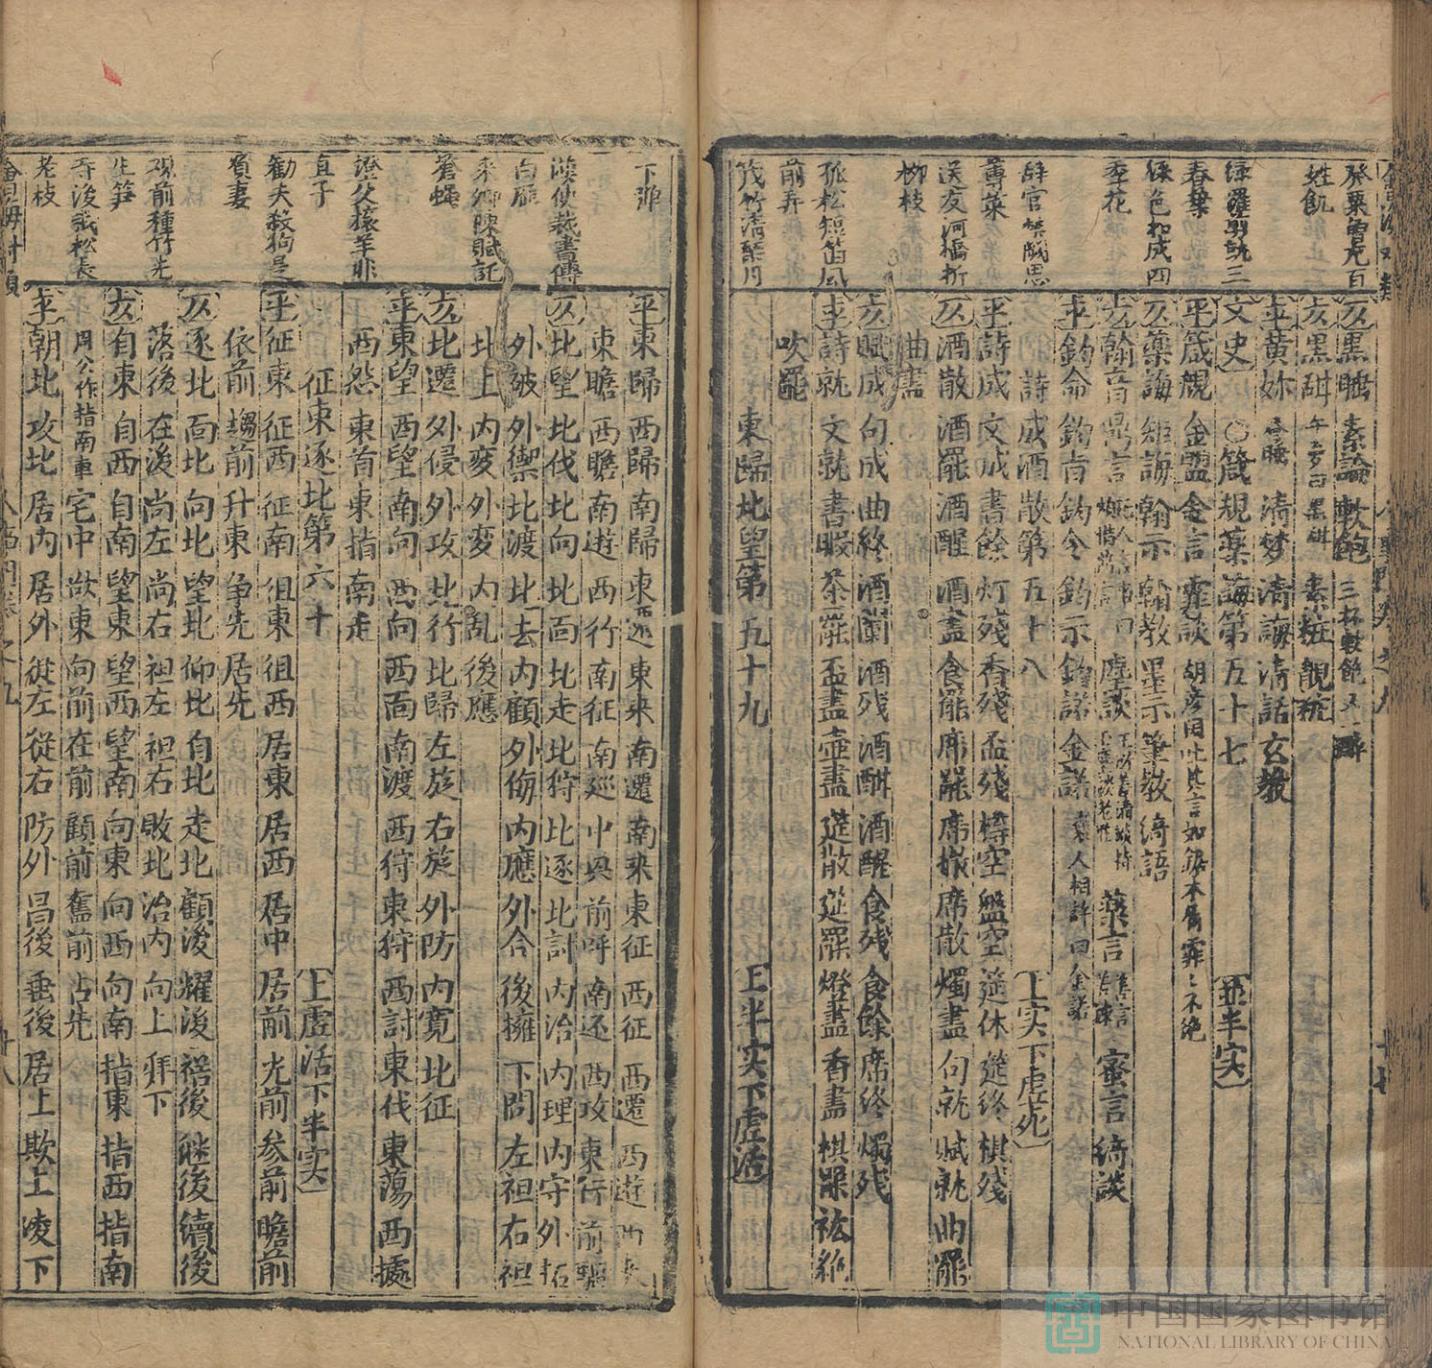 發粟曾充百
姓飢
綠羅剪就三
春葉
綠色粧成四
季花
辭官焚馘思
蓴菜
送友河橋折
柳枝
孤松短笛風
前弄
仄黑甜 素論 軟飽 三杯軟飽又一
仄黑甜 午夢曰黑甜 素粧 靚粧
平黃妳 清夢 清誨 清話 玄教
文史 箴規藥誨第五十七 並半实
平箴規 金盟 金言 霏談 胡彦国吐其言如鋸木屑霏々不絶
仄藥誨 矩誨 翰示 翰教 墨示 筆教 綺語
藥言 蜜言 綺談
平鈞命 鈞旨 鈞令 鈞示 鈞諾 金諾
詩成酒散第五十八 上实下虛死
平詩成 文成 書餘 灯殘 香殘 盃殘 樽空 盤空 筵休 筵終 棋殘
仄酒散 酒罷 酒醒 酒盡 食罷 席罷 席散 燭盡 句就 賦就 曲罷
曲盡
仄賦成 句成 曲終 酒闌 酒残 酒酣 酒醒 食残 食餘 席終 燭残
平詩就 文就 書暇 茶罷 盃盡 壺盡 筵散 筵罷 燈盡 香盡 棋罷 絃絶
吹罷
東歸北望第五十九 上半实下虛活
漢使裁書傳
白雁
蒼蠅
證父攘羊非
直子
勸夫殺狗是
賢妻
現前種竹先
生笋
寺後栽松長
老枝
平東歸 西歸 南歸 東巡 東來 南遷 南来 東征 西征 西遷 西遊
東瞻 西瞻 南遊 西行 南征 南巡 中興 前呼 南还 西攻 東行 前驅
仄北望 北伐 北向 北面 北走 北狩 北逐 北討 内治 内理 内守 外拓
外破 外禦 北渡 北去 内顧 外侮 内應 外合 後擁 下問 左袒 右袒
北上 内変 外変 内乱 後應
仄北遷 外侵 外攻 北行 北歸 左旋 右旋 外防 内寬 北征
平東望 西望 南向 西向 西面 南渡 西狩 東狩 西討 東伐 東蕩 西據
西怨 東首 東指 南走
征東逐北第六十 上虛活下半实
平征東 征西 征南 徂東 徂西 居東 居西 居中 居前 尤前 参前 瞻前
依前 趨前 升東 争先 居先
仄逐北 面北 向北 望北 仰北 自北 走北 顧後 耀後 裕後 継後 續後
落後 在後 尚左 尚右 袒左 袒右 敗北 治内 向上 拜下
仄自東 自西 自南 望東 望西 望南 向東 向西 向南 指東 指西 指南
周公作指南車 宅中 向前 在前 顧前 奮前 占先
平朝北 攻北 居内 居外 従左 從右 防外 昌後 垂後 居上 欺上 凌下
中国国家图书馆
NATIONAL LIBRARY OF CHINA